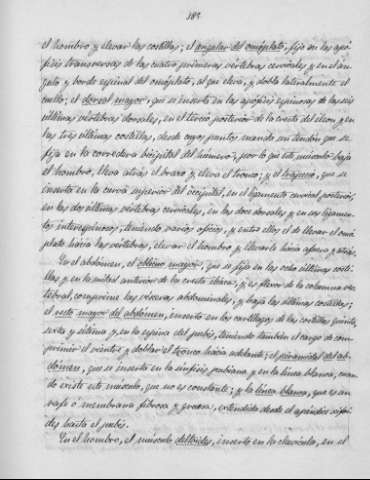 185
el hombro y elevar las costillas; el angular del omóplato, fijo en las apó-
fisis transversas de las cuatro primeras vértebras cervicales y en el án-
gulo y borde espinal del omóplato, al que eleva, y dobla lateralmente el
cuello; el dorsal mayor, que se inserta en las apófisis espinosas de las seis
últimas vértebras dorsales, en el tercio posterior de la cresta del ileon y en
las tres últimas costillas, desde cuyos puntos manda un tendón que se
fija en la corredera bicipital del húmero, por lo que este músculo baja
el hombro, lleva atrás el brazo y eleva el tronco; y el trapecio, que se
inserta en la curva superior del occipital, en el ligamento cervical posterior,
en las dos últimas vértebras cervicales, en las doce dorsales y en sus ligamen-
tos interespinosos, teniendo varios oficios, y entre ellos el de llevar el omó-
plato hácia las vértebras, elevar el hombro y llevarle hácia afuera y atrás.
En el abdómen, el oblicuo mayor, que se fija en las ocho últimas costi-
llas y en la mitad anterior de la cresta iliaca, y es flexor de la columna ver-
tebral, comprime las vísceras abdominales, y baja las últimas costillas;
el recto mayor del abdómen, inserto en los cartílagos de las costillas quinta,
sexta y séptima y en la espina del pubis, teniendo tambien el cargo de com-
primir el vientre y doblar el tronco hácia adelante; el piramidal del ab-
dómen, que se inserta en la sínfisis pubiana y en la línea blanca, cuan-
do existe este músculo, que no es constante; y la línea blanca, que es un
rafe ó membrana fibrosa y gruesa, extendida desde el apéndice xifoi-
des hasta el pubis.
En el hombro, el músculo deltoides, inserto en la clavícula, en el